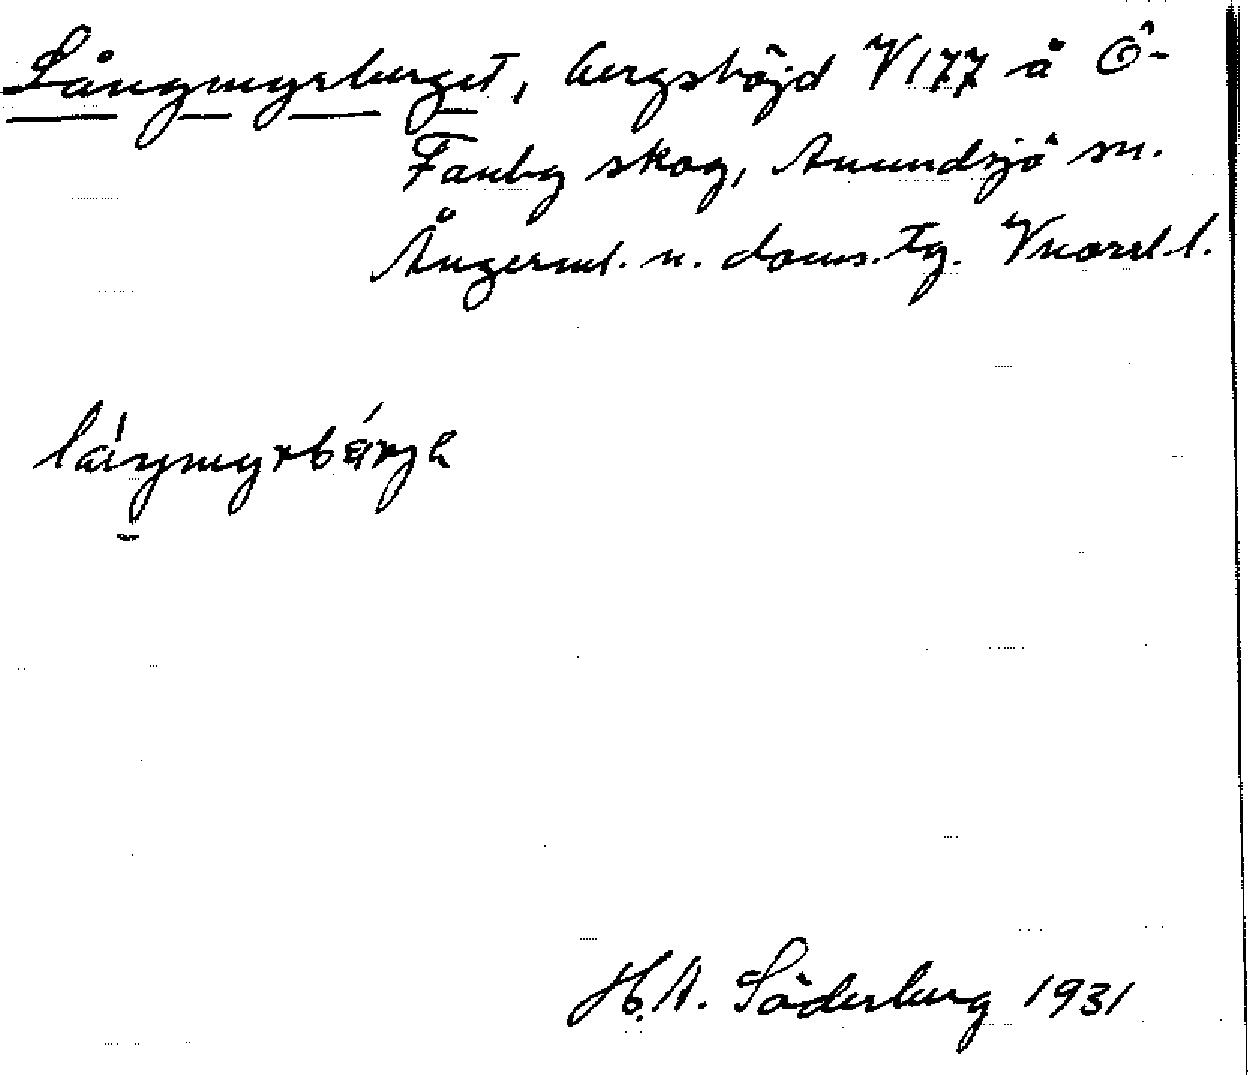 Långmyrberget, bergshöjd V 177 å Ö-
Fanby skog, Anundsjö sn.
Ångerml. n. doms. tg. Vnorrl. l.
H. A. Söderberg 1931